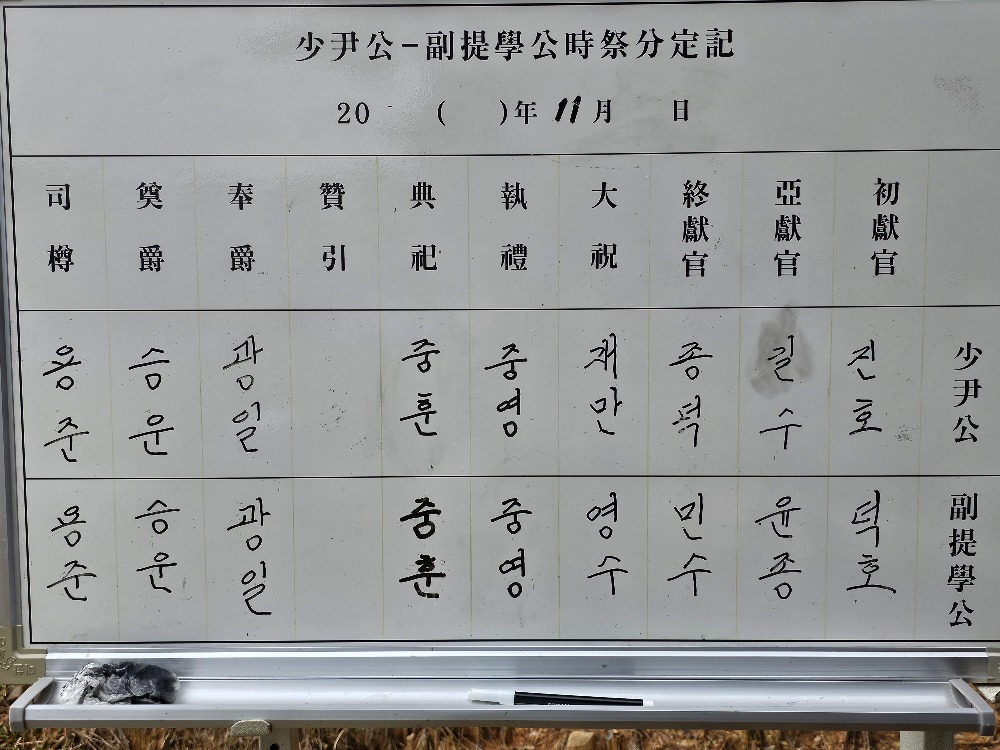 少尹公-副提學公時祭分定記
20 ( )年 11月 日
初獻官 亞獻官 終獻官 大祝 執禮 典祀 贊引 奉爵 奠爵 司樽
少尹公 진호 길수 종덕 재만 중영 중훈 광일 승운 용준
副提學公 덕호 윤종 민수 영수 중영 중훈 광일 승운 용준